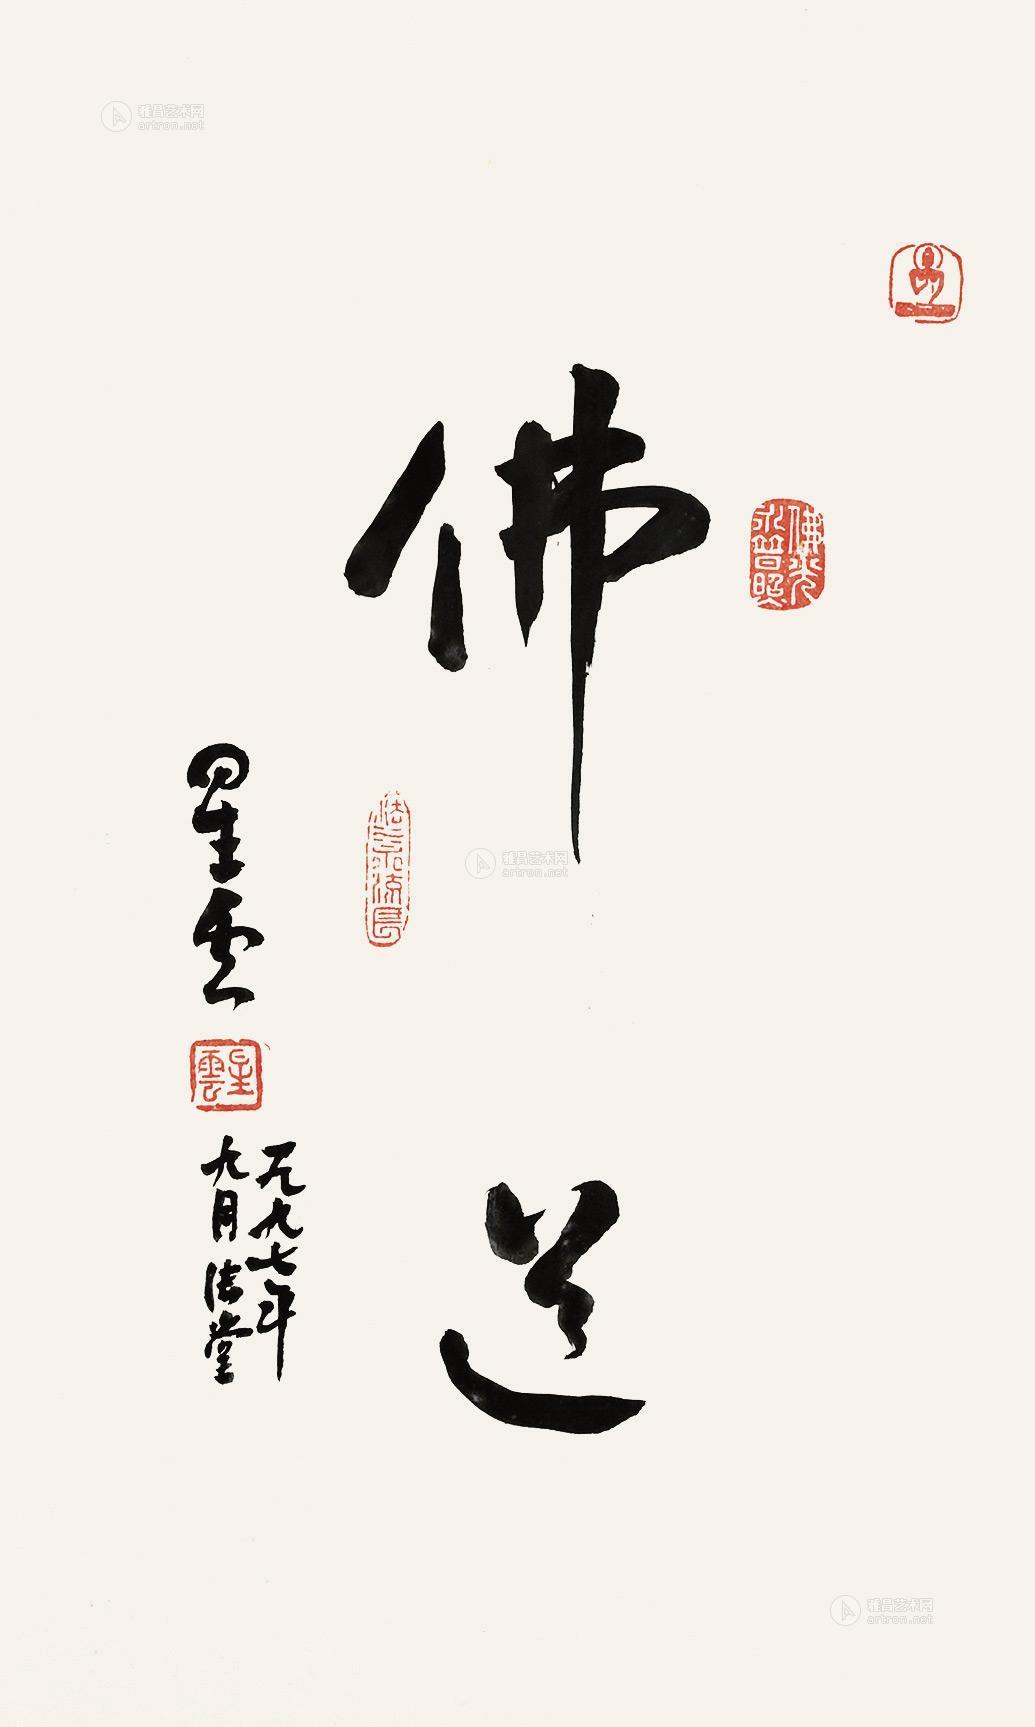 佛道
星雲
一九九七年
九月法堂
佛光
永普照
法水流長
星雲
雅昌艺术网
artron.net
雅昌艺术网
artron.net
雅昌艺术网
artron.net